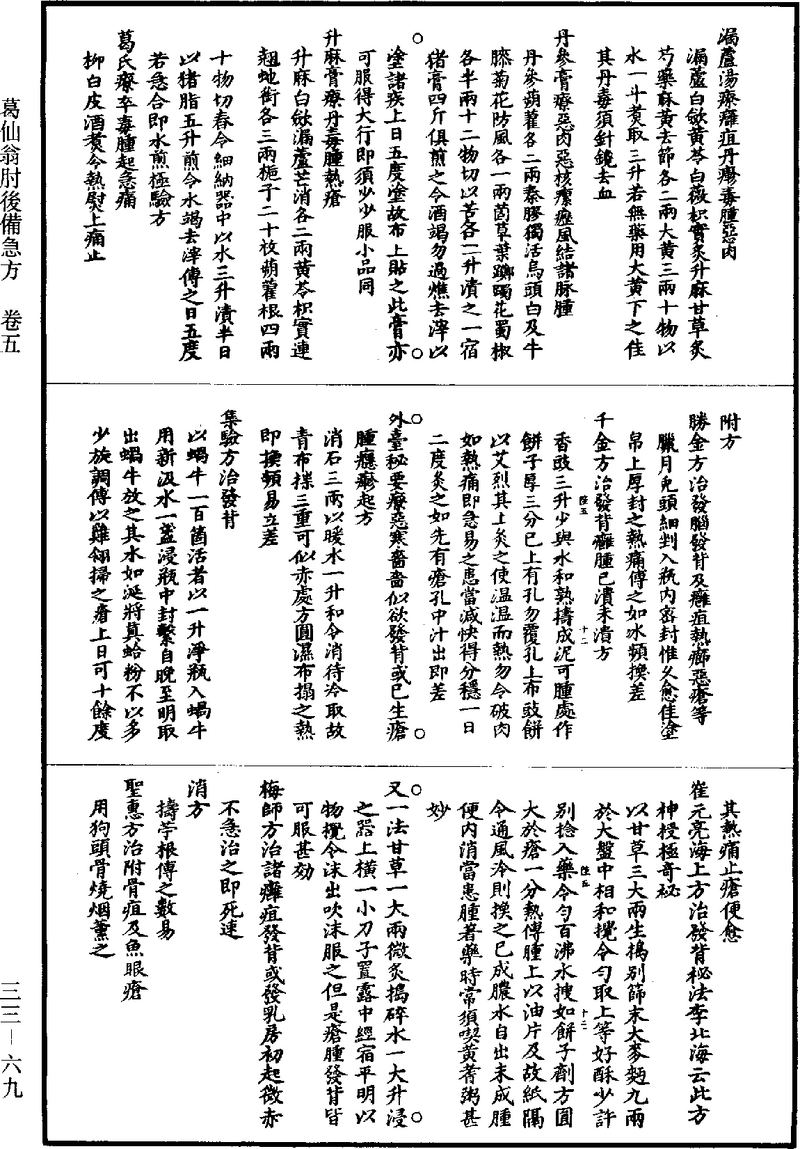 葛仙翁肘後備急方　卷五
漏蘆湯療癰疽丹癮毒腫惡肉
漏蘆白斂黃芩白薇枳實炙升麻甘草炙
芍藥麻黃去節各二兩大黃三兩十物以
水一斗煮取三升若無藥用大黃下之佳
其丹毒須針鑱去血
丹參膏療惡肉惡核瘰癧風結諸脉腫
丹參蒴藋各二兩秦膠獨活烏頭白及牛
膝菊花防風各一兩䓤草葉躑躅花蜀椒
各半兩十二物切以苦各二升漬之一宿
猪膏四斤俱煎之令酒竭勿過燋去滓以
塗諸疾上日五度塗故布上貼之此膏亦
可服得大行即須少少服小品同
升麻膏療丹毒腫熱瘡
升麻白斂漏蘆芒消各二兩黃芩枳實連
翹虵銜各三兩梔子二十枚蒴藋根四兩
十物切舂令細納器中以水三升漬半日
以猪脂五升煎令水竭去滓傅之日五度
若急合即水煎極驗方
葛氏療卒毒腫起急痛
柳白皮酒煮令熱熨上痛止
附方
勝金方治發腦發背及癰疽熱癤惡瘡等
臘月兔頭細剉入瓶内密封惟久愈佳塗
帛上厚封之熱痛傅之如冰頻換差
千金方治發背癰腫已潰未潰方
香豉三升少與水和熟擣成泥可腫處作
餅子厚三分已上有孔勿覆孔上布豉餅
以艾烈其上炙之使温温而熱勿令破肉
如熱痛即急易之患當減快得分穩一日
二度炙之如先有瘡孔中汁出即差
外臺秘要療惡寒嗇嗇似欲發背或已生瘡
腫癮疹起方
消石三兩以暖水一升和令消待冷取故
青布揲三重可似赤處方圓濕布搨之熱
即換頻易立差
集驗方治發背
以蝸牛一百箇活者以一升淨瓶入蝸牛
用新汲水一盞浸瓶中封繫自晚至明取
出蝸牛放之其水如涎將真蛤粉不以多
少旋調傅以雞翎掃之瘡上日可十餘度
其熱痛止瘡便愈
崔元亮海上方治發背秘法李北海云此方
神授極奇祕
以甘草三大兩生搗別篩末大麥麪九兩
於大盤中相和攪令勻取上等好酥少許
別捻入藥令勻百沸水搜如餅子劑方圓
大於瘡一分熱傅腫上以油片及故紙隔
令通風冷則換之已成膿水自出未成腫
便内消當患腫著藥時常須喫黃蓍粥甚
妙
又一法甘草一大兩微炙搗碎水一大升浸
之器上橫一小刀子置露中經宿平明以
物攪令沫出吹沫服之但是瘡腫發背皆
可服甚効
梅師方治諸癰疽發背或發乳房初起微赤
不急治之即死速
消方
擣苧根傅之數易
聖惠方治附骨疽及魚眼瘡
用狗頭骨燒烟薰之
三三－六九